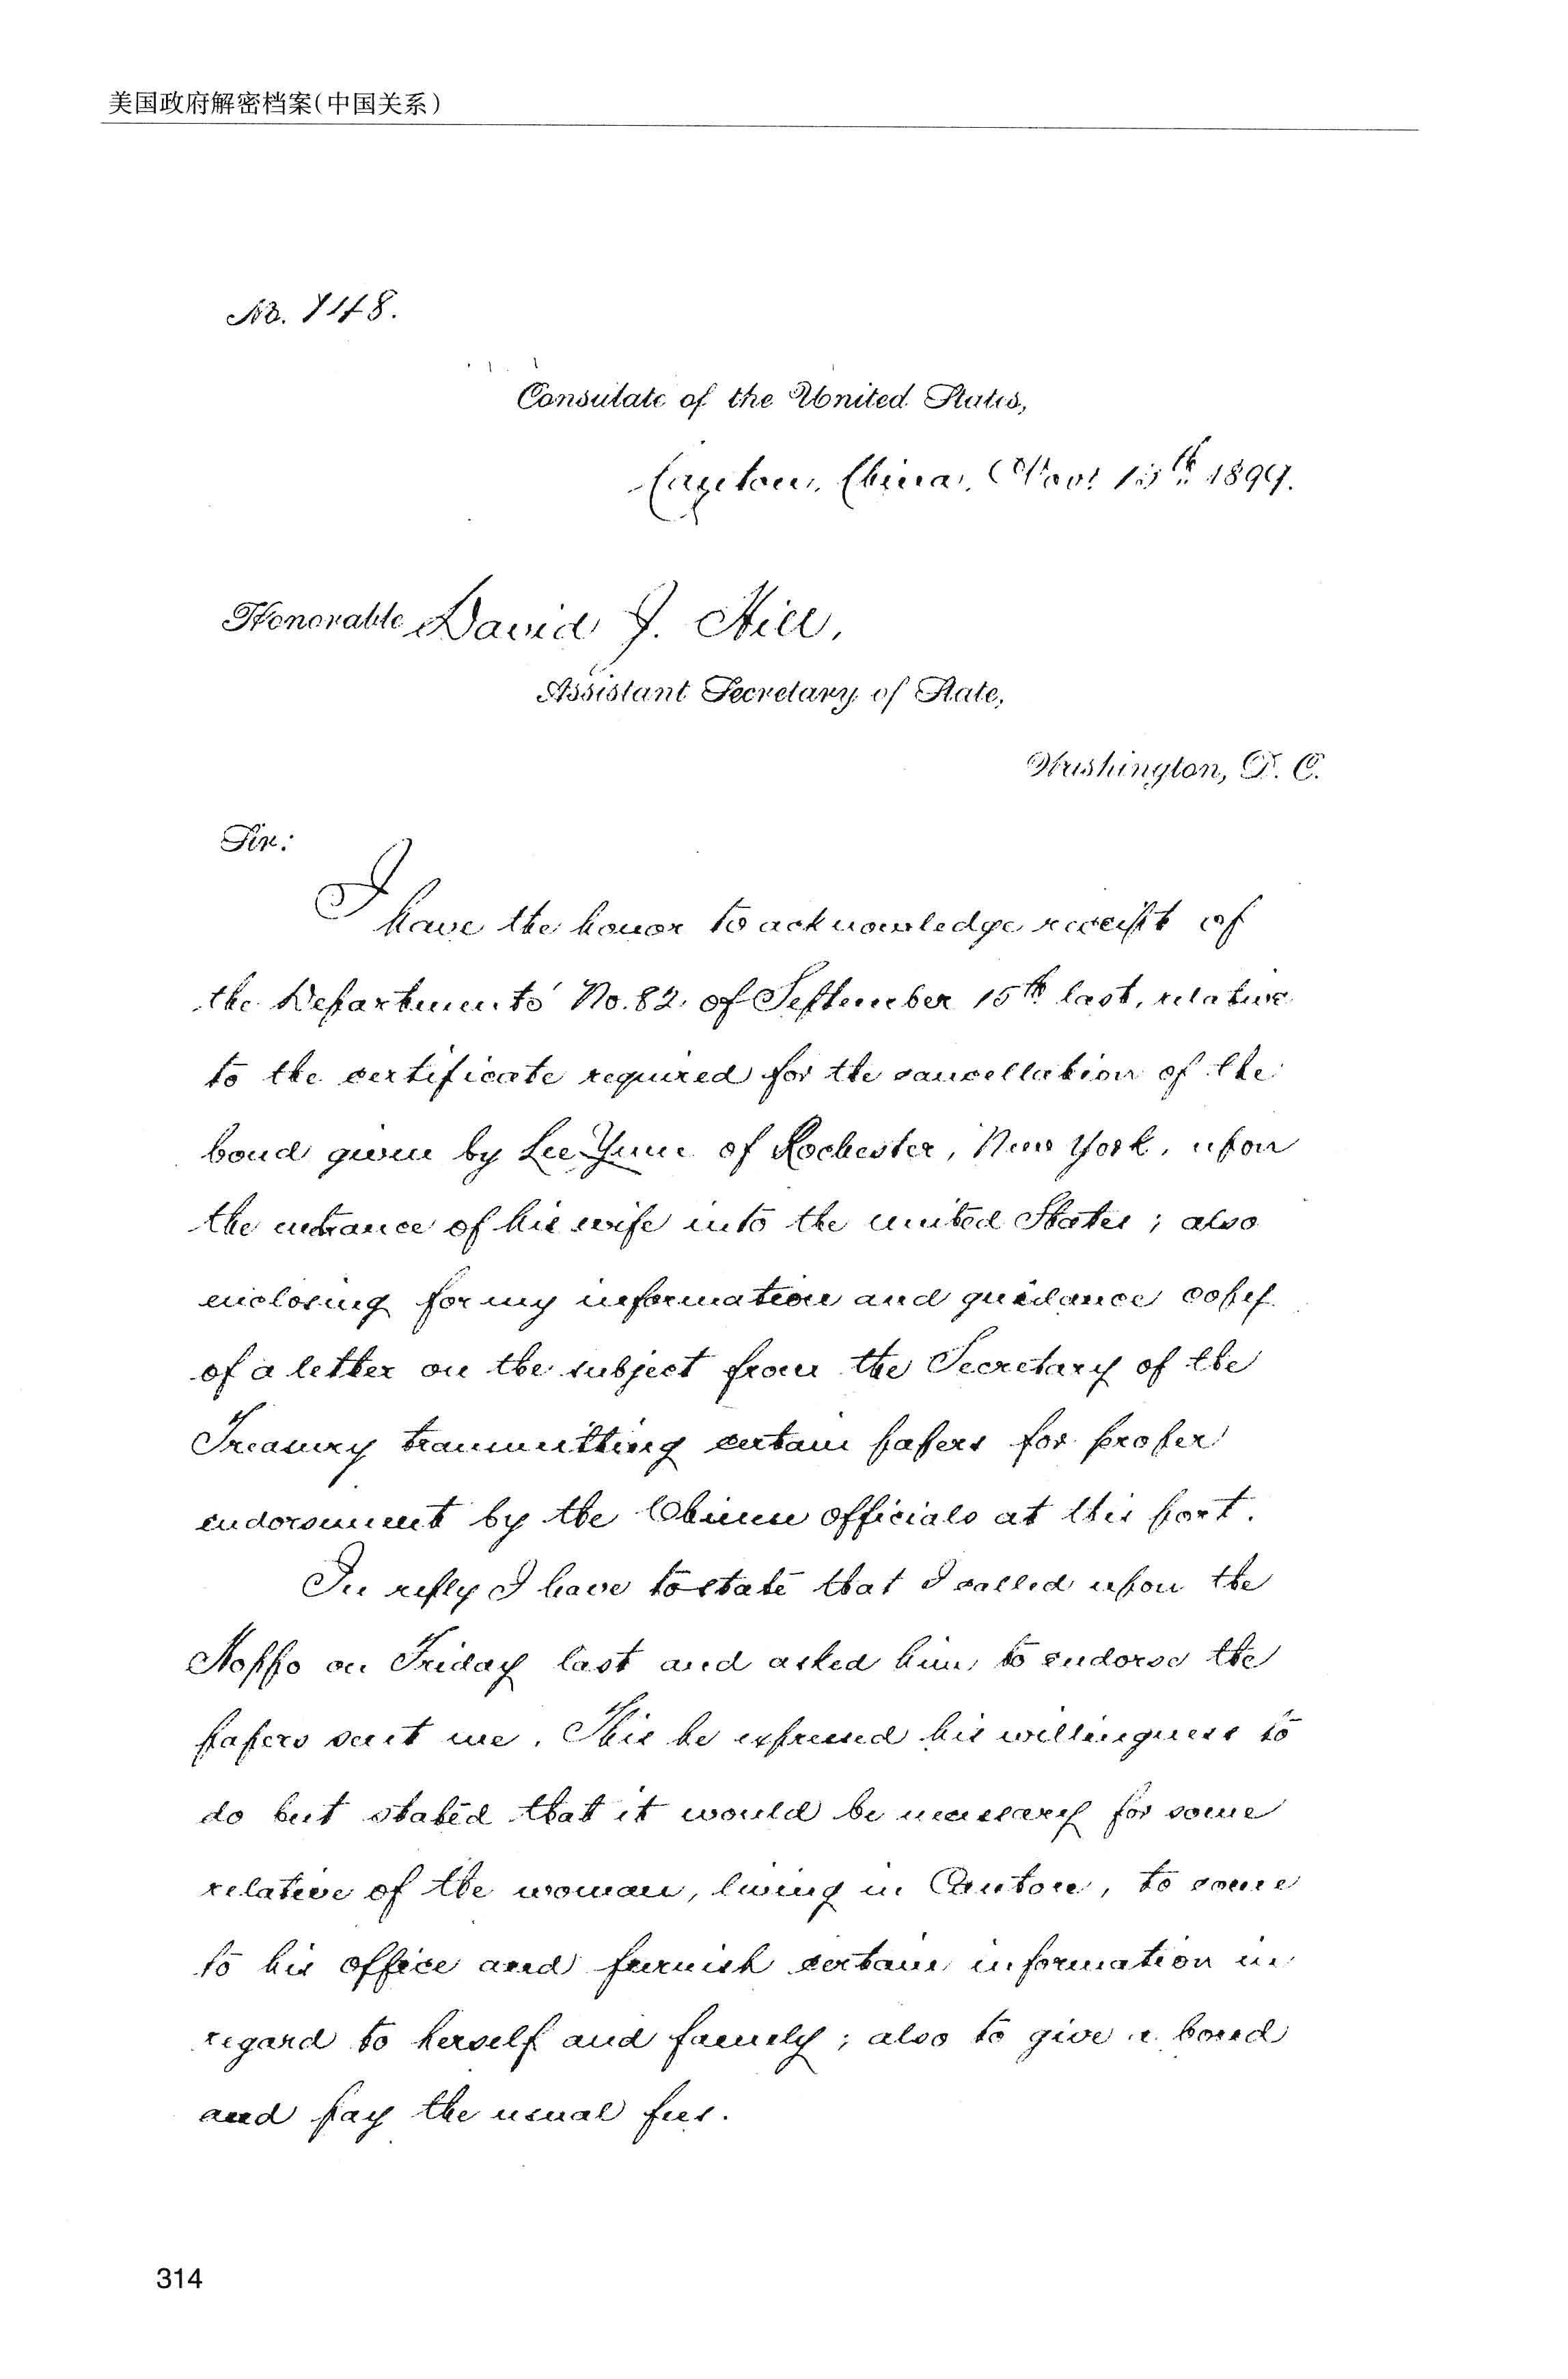 美国政府解密档案(中国关系)
No. 148.
Consulate of the United States,
Canton, China, Nov. 13th 1899.
Honorable David J. Hill,
Assistant Secretary of State,
Washington, D. C.
Sir:
I have the honor to acknowledge receipt of
the Departments' No. 82, of September 15th last, relative
to the certificate required for the cancellation of the
bond given by Lee Yune of Rochester, New York, upon
the entrance of his wife into the united States; also
enclosing for my information and guidance copy
of a letter on the subject from the Secretary of the
Treasury transmitting certain papers for proper
endorsement by the Chinese officials at this port.
In reply I have to state that I called upon the
Hoppo on Friday last and asked him to endorse the
papers sent me. This he expressed his willingness to
do but stated that it would be necessary for some
relative of the woman, living in Canton, to come
to his office and furnish certain information in
regard to herself and family; also to give a bond
and pay the usual fees.
314